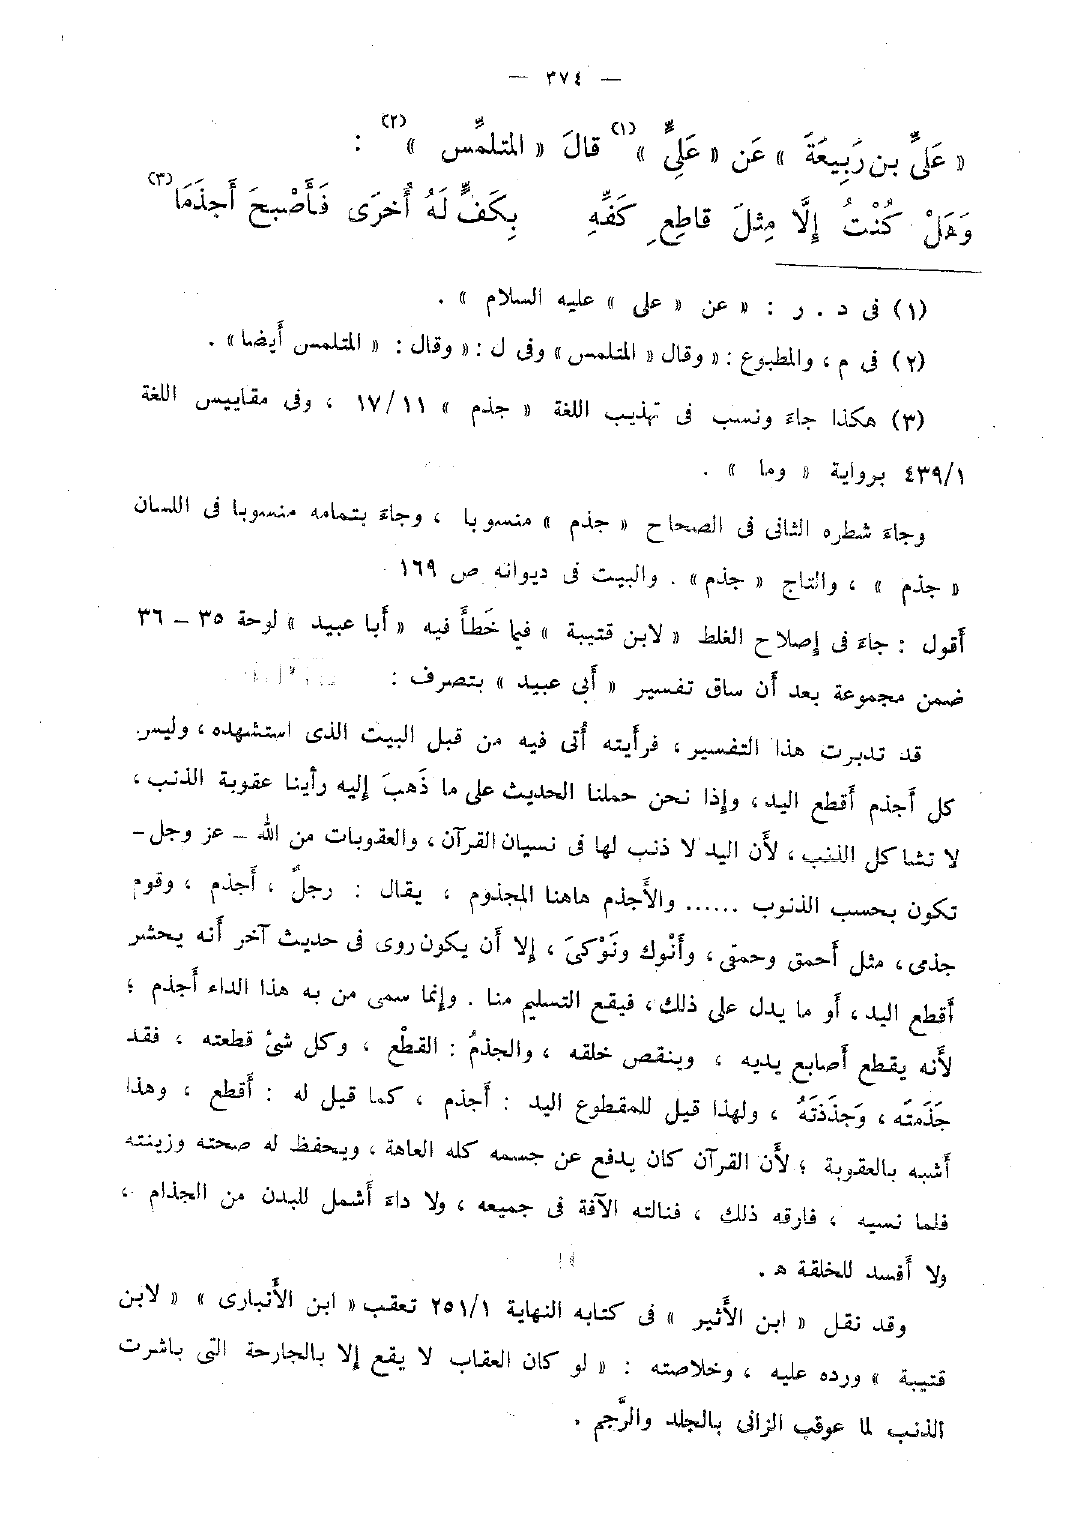 — ٣٧٤ —
« عَلىِّ بن رَبِيعَةَ » عَن « عَلِىٍّ »(١) قالَ « المتلمِّس »(٢) :
وَهَلْ كُنْتُ إِلَّا مِثلَ قاطِعِ كَفِّهِ بِكَفٍّ لَهُ أُخرَى فَأَصْبحَ أَجذَمَا(٣)
(١) فى د . ر : « عن « على » عليه السلام » .
(٢) فى م ، والمطبوع : « وقال « المتلمس » وفى ل : « وقال : « المتلمس أيضا » .
(٣) هكذا جاءَ ونسب فى تهذيب اللغة « جذم » ١٧/١١ ، وفى مقاييس اللغة
٤٣٩/١ برواية « وما » .
وجاءَ شطره الثانى فى الصحاح « جذم » منسوبا ، وجاءَ بتمامه منسوبا فى اللسان
« جذم » ، والتاج « جذم » . والبيت فى ديوانه ص ١٦٩
أقول : جاءَ فى إصلاح الغلط « لابن قتيبة » فيما خَطأَ فيه « أَبا عبيد » لوحة ٣٥ – ٣٦
ضمن مجموعة بعد أن ساق تفسير « أَبى عبيد » بتصرف :
قد تدبرت هذا التفسير ، فرأيته أُتى فيه من قبل البيت الذى استشهده ، وليس
كل أَجذم أَقطع اليد ، وإذا نحن حملنا الحديث على ما ذَهبَ إليه رأينا عقوبة الذنب ،
لا تشاكل الذنب ، لأَن اليد لا ذنب لها فى نسيان القرآن ، والعقوبات من الله – عز وجل –
تكون بحسب الذنوب ...... والأَجذم هاهنا المجذوم ، يقال : رجلٌ ، أَجذم ، وقوم
جذمى ، مثل أَحمق وحمقى ، وأَنْوك ونَوْكىَ ، إلا أن يكون روى فى حديث آخر أنه يحشر
أقطع اليد ، أو ما يدل على ذلك ، فيقع التسليم منا . وإنما سمى من به هذا الداء أَجذم ؛
لأَنه يقطع أَصابع يديه ، وينقص خلقه ، والجذمُ : القطْع ، وكل شئ قطعته ، فقد
جَذَمتَه ، وَجَذَذتَهُ ، ولهذا قيل للمقطوع اليد : أَجذم ، كما قيل له : أَقطع ، وهذا
أَشبه بالعقوبة ؛ لأَن القرآن كان يدفع عن جسمه كله العاهة ، ويحفظ له صحته وزينته
فلما نسيه ، فارقه ذلك ، فنالته الآفة فى جميعه ، ولا داءَ أَشمل للبدن من الجذام ،
ولا أَفسد للخلقة ه .
وقد نقل « ابن الأَثير » فى كتابه النهاية ٢٥١/١ تعقب « ابن الأَنبارى » « لابن
قتيبة » ورده عليه ، وخلاصته : « لو كان العقاب لا يقع إلا بالجارحة التى باشرت
الذنب لما عوقب الزانى بالجلد والرَّجم .